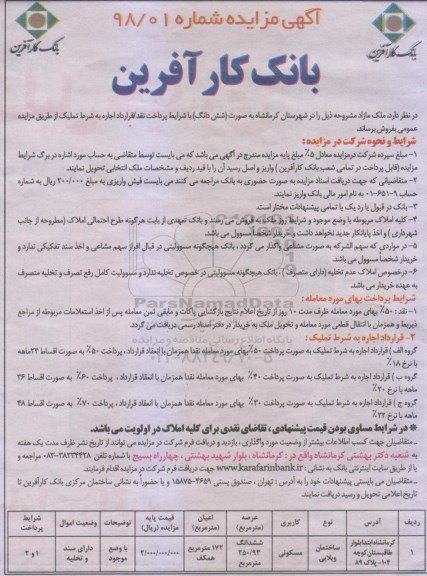 آگهی مزایده شماره ۹۸/۰۱
بانک کارآفرین
بانک کارآفرین
بانک کارآفرین
در نظر دارد، ملک مازاد مشروحه ذیل را در شهرستان کرمانشاه به صورت (شش دانگ) با شرایط پرداخت نقد/قرارداد اجاره به شرط تملیک از طریق مزایده
عمومی بفروش برساند.
شرایط و نحوه شرکت در مزایده :
۱- مبلغ سپرده شرکت درمزایده معادل ۵٪ مبلغ پایه مزایده مندرج در آگهی می باشد که می بایست توسط متقاضی به حساب مورد اشاره در برگ شرایط
مزایده (قابل پرداخت در تمامی شعب بانک کارآفرین) واریز و اصل رسید آن را با قید ردیف و مشخصات ملک انتخابی تحویل نمایند.
۲- متقاضیانی که جهت دریافت اسناد مزایده به صورت حضوری به بانک مراجعه می کنند می بایست فیش واریزی به مبلغ ۲۰۰/۰۰۰ ریال به شماره
به نام امور مالی بانک واریز نمایند.
۳- بانک در قبول یا رد یک یا تمامی پیشنهادات مختار است.
۴- کلیه املاک مربوطه با وضع موجود و شرایط روز ملک به فروش می رسند و بانک تعهدی از بابت هرگونه طرح احتمالی املاک (مطروحه از جانب
شهرداری) و اخذ پایانکار جدید نخواهد داشت و خریدار شخصاً مسوول می باشد.
۵- در مواردی که سهم الشرکه به صورت مشاعی واگذار می گردد، بانک هیچگونه مسوولیتی در قبال افراز سهم مشاعی و اخذ سند تفکیکی ندارد و
خریدار شخصاً مسوول می باشد.
۶- درخصوص املاک عدم تخلیه (دارای متصرف)، بانک هیچگونه مسوولیتی در خصوص تخلیه ندارد و مسوولیت کامل رفع تصرف و تخلیه متصرف
به عهده خریدار می باشد.
شرایط پرداخت بهای مورد معامله :
۱- نقد : ۵۰٪ بهای مورد معامله ظرف مدت ۱۰ روز از تاریخ اعلام نتایج بازگشایی پاکات و مابقی ثمن معامله پس از اخذ استعلامات مربوطه از مراجع
ذیربط و همزمان با انتقال قطعی مورد معامله و تحویل ملک به خریدار در دفتر اسناد رسمی دریافت می گردد.
۲- قرارداد اجاره به شرط تملیک :
گروه الف) قرارداد اجاره به شرط تملیک به صورت پرداخت ۵۰٪ بهای مورد معامله نقدا همزمان با انعقاد قرارداد، پرداخت ۵۰٪ به صورت اقساط ۲۴ماهه
با نرخ ۱۸٪
گروه ب) قرارداد اجاره به شرط تملیک به صورت پرداخت ۴۰٪ بهای مورد معامله نقدا همزمان با انعقاد قرارداد، پرداخت ۶۰٪ به صورت اقساط ۳۶
ماهه با نرخ ۲۰٪
گروه ج) قرارداد اجاره به شرط تملیک به صورت پرداخت ۳۰٪ بهای مورد معامله نقدا همزمان با انعقاد قرارداد، پرداخت ۷۰٪ به صورت اقساط ۴۸
ماهه با نرخ ۲۲٪
* در شرایط مساوی بودن قیمت پیشنهادی، تقاضای نقدی برای کلیه املاک در اولویت می باشد.
ـ متقاضیان جهت کسب اطلاعات بیشتر از وضعیت مورد واگذاری، بازدید و دریافت فرم شرکت در مزایده می توانند از تاریخ نشر ظرف مدت یک هفته
به شعبه دکتر بهشتی کرمانشاه واقع در : کرمانشاه، بلوار شهید بهشتی، چهارراه بسیج با شماره تلفن ۳۸۲۳۴۲۲۸-۰۸۳ مراجعه و
یا از طریق سایت اینترنتی بانک به نشانی : www.karafarinbank.ir جهت دریافت فرم شرکت در مزایده اقدام فرمایند.
ـ متقاضیان می بایستی پیشنهادات خود را به آدرس : تهران، صندوق پستی ۴۶۵۹-۱۵۸۷۵ و یا حضوراً به نشانی ساختمان مرکزی بانک کارآفرین تا
تاریخ اعلامی تحویل و رسید دریافت نمایند.
ردیف آدرس نوع کاربری عرصه (مترمربع) اعیان (مترمربع) قیمت پایه مزایده (ریال) توضیحات وضعیت اموال شرایط پرداخت
۱ کرمانشاه ابتدا بلوار طاقبستان کوچه ۱۰۴- پلاک ۸۹ ساختمان ویلایی مسکونی ششدانگ ۲۵۰/۹۳ مترمربع ۱۷۲ مترمربع همکف با وضع موجود دارای سند و تخلیه ۱ و ۲
ParsNamadData
پایگاه اطلاع رسانی مناقصه و مزایده